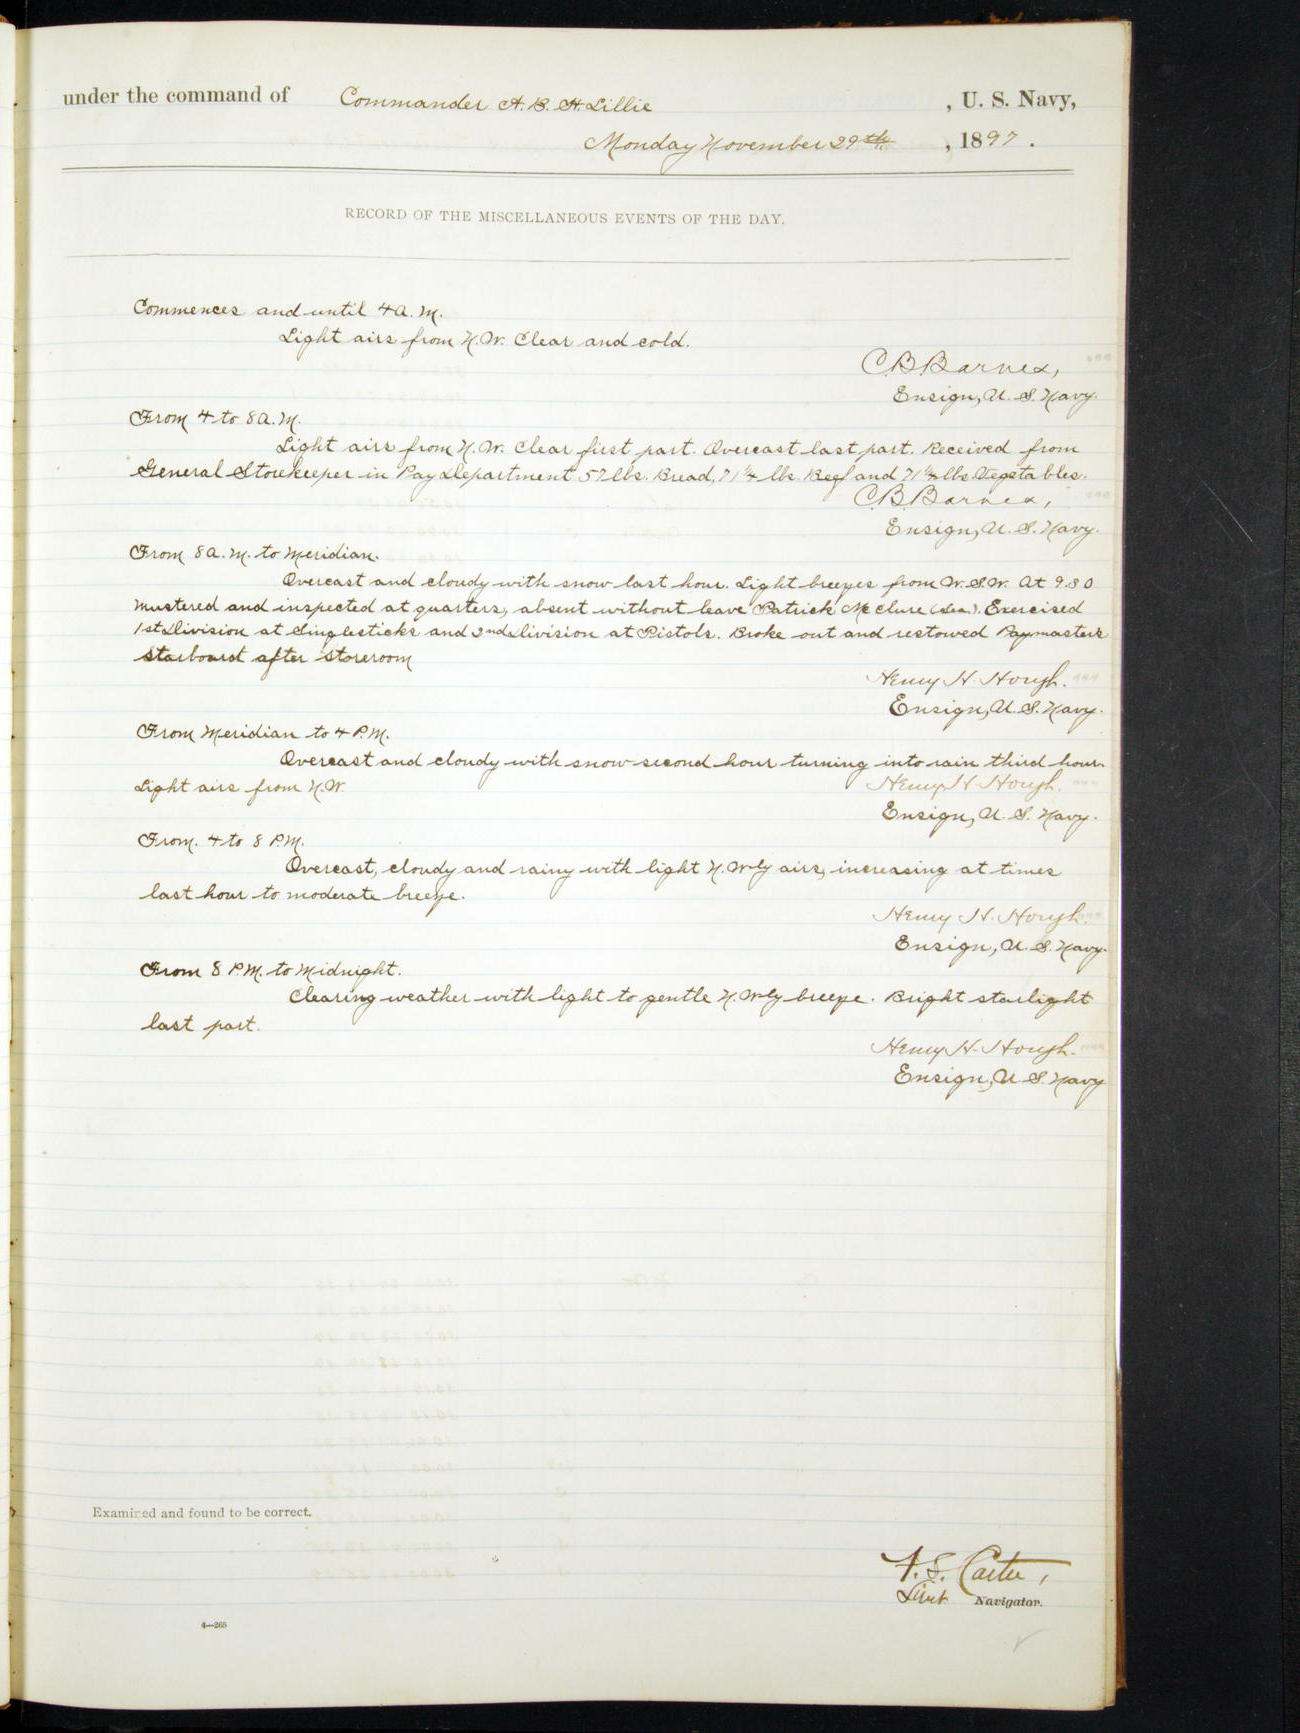 under the command of Commander A. B. H. Lillie , U. S. Navy,
Monday November 29th , 1897 .
RECORD OF THE MISCELLANEOUS EVENTS OF THE DAY.
Commences and until 4 A. M.
Light airs from N.W. Clear and cold.
C.B. Barnes,
Ensign, U. S. Navy.
From 4 to 8 A. M.
Light airs from N.W. Clear first part. Overcast last part. Received from
General Storekeeper in Pay Department 57 lbs. Bread, 71 1/4 lbs. Beef and 71 1/4 lbs. Vegetables.
C.B. Barnes,
Ensign, U. S. Navy.
From 8 A. M. to Meridian.
Overcast and cloudy with snow last hour. Light breezes from W.S.W. At 9.30
mustered and inspected at quarters, absent without leave Patrick McClure (Sea.). Exercised
1st Division at Singlesticks and 2nd Division at Pistols. Broke out and restowed Paymasters
starboard after storeroom
Henry H. Hough.
Ensign, U. S. Navy.
From Meridian to 4 P. M.
Overcast and cloudy with snow second hour turning into rain third hour.
Light airs from N.W.
Henry H. Hough.
Ensign, U. S. Navy.
From. 4 to 8 P.M.
Overcast, cloudy and rainy with light N.W'ly airs, increasing at times
last hour to moderate breeze.
Henry H. Hough.
Ensign, U. S. Navy.
From 8 P.M. to Midnight.
Clearing weather with light to gentle N.W'ly breeze. Bright starlight
last part.
Henry H. Hough.
Ensign, U. S. Navy
Examined and found to be correct.
Lieut Navigator.
4—265